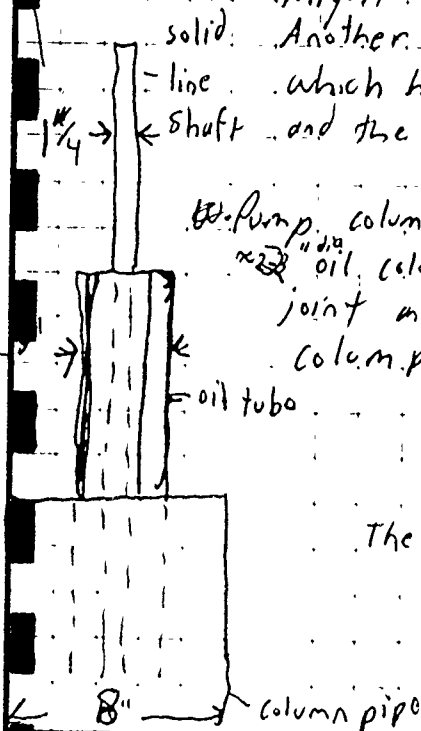 solid. Another
line which h
1 1/4" shaft and the
Pump colum
"dia oil col
joint
colum.p
oil tube
The
8"
column pipe